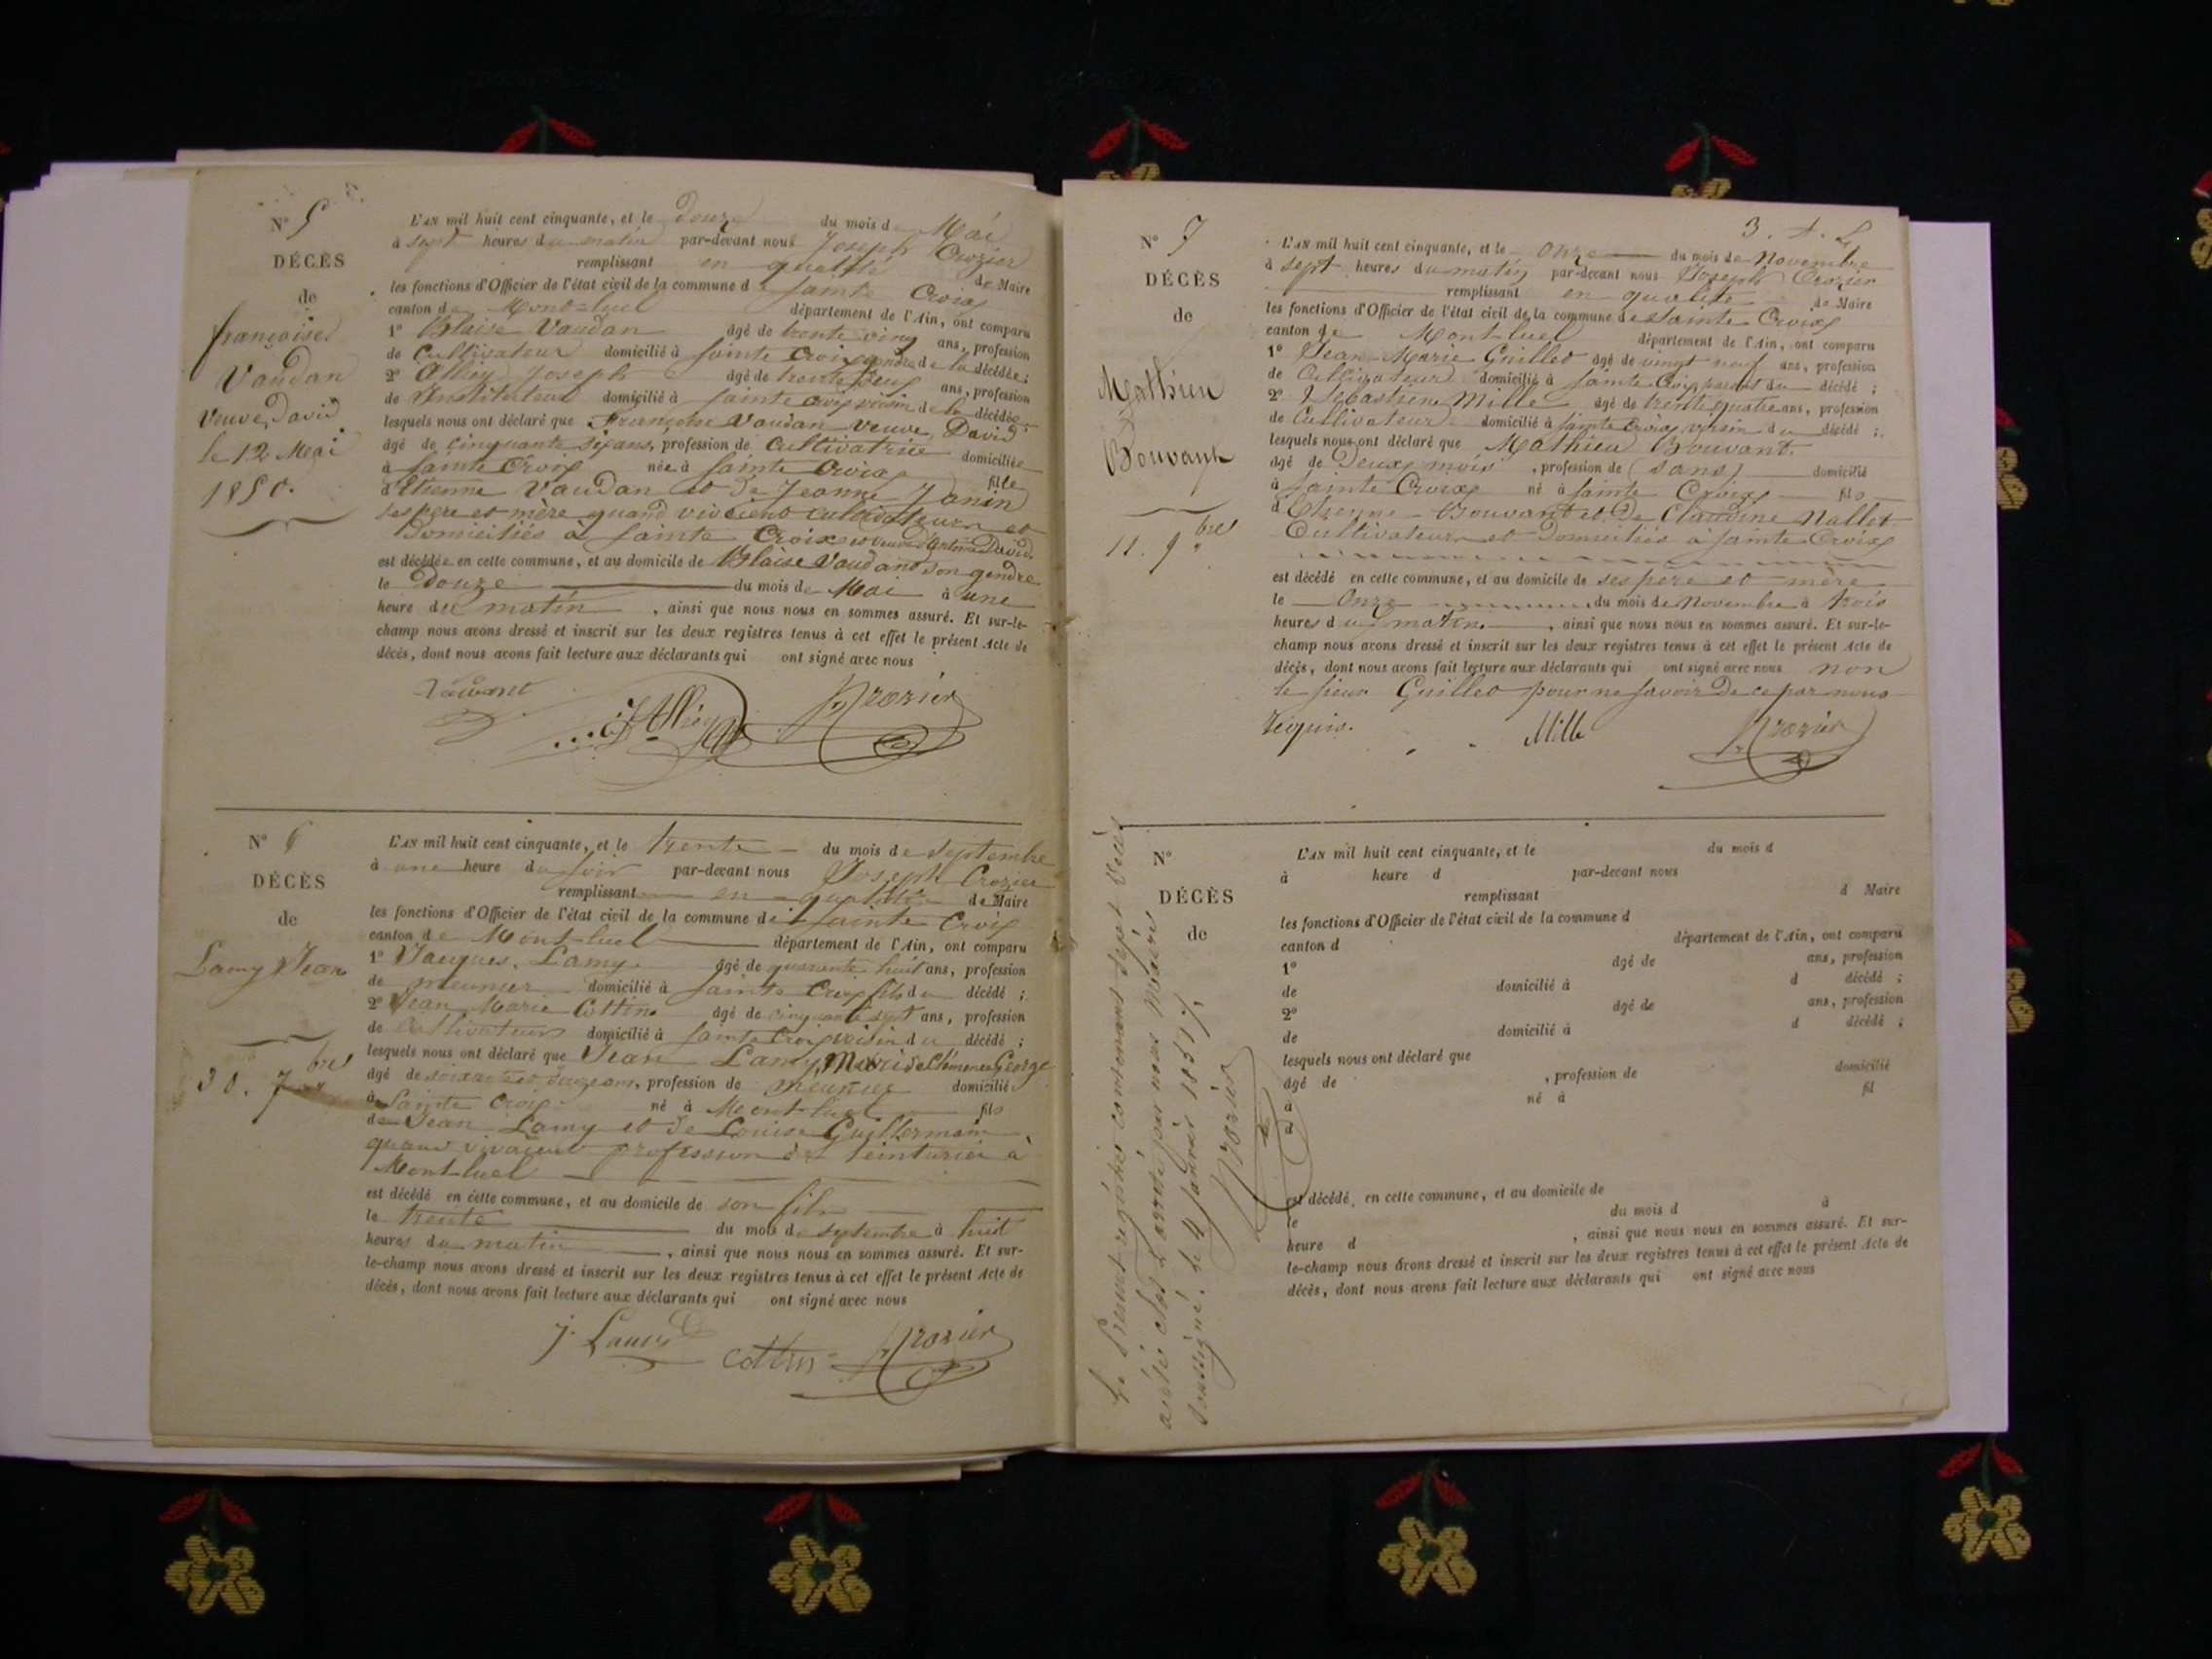 N° 5
DÉCÈS
de
françoise
Vaudan
Veuve David
le 12 Mai
1850.
L'AN mil huit cent cinquante, et le Douze du mois de Mai
à sept heures du matin par-devant nous Joseph Crozier
remplissant en qualité de Maire
les fonctions d'Officier de l'état civil de la commune de Sainte Croix
canton de Mont-luel département de l'Ain, ont comparu
1° Blaise Vaudan âgé de trente cinq ans, profession
de Cultivateur domicilié à Sainte Croix gendre de la décédée;
2° Alhoy Joseph âgé de trente deux ans, profession
de Instituteur domicilié à Sainte croix voisin de la décédée
lesquels nous ont déclaré que Françoise Vaudan veuve David
âgé de cinquante six ans, profession de Cultivatrice domiciliée
à Sainte Croix née à Sainte Croix fille
d'Etienne Vaudan et de Jeanne Janin
ses père et mère quand vivoient cultivateurs et
Domiciliés à Sainte Croix et veuve d'Antoine David
est décédée en cette commune, et au domicile de Blaise Vaudan son gendre
le Douze du mois de Mai à une
heure du matin, ainsi que nous nous en sommes assuré. Et sur-le-
champ nous avons dressé et inscrit sur les deux registres tenus à cet effet le présent Acte de
décès, dont nous avons fait lecture aux déclarants qui ont signé avec nous
Crozier
N° 6
DÉCÈS
de
Lamy Jean
30. 7bre
L'AN mil huit cent cinquante, et le trente du mois de septembre
à une heure du soir par-devant nous Joseph Crozier
remplissant en qualité de Maire
les fonctions d'Officier de l'état civil de la commune de Sainte Croix
canton de Mont-luel département de l'Ain, ont comparu
1° Jacques Lamy âgé de quarante huit ans, profession
de meunier domicilié à Sainte Croix fils du décédé;
2° Jean Marie Cottin âgé de cinquante sept ans, profession
de Cultivateur domicilié à Sainte Croix voisin du décédé;
lesquels nous ont déclaré que Jean Lamy, Mari de Clémence George
âgé de soixante et douze ans, profession de meunier domicilié
à Sainte Croix né à Mont-luel fils
de Jean Lamy et de Louise Guillermain
quand vivaient profession de teinturier à
Mont-luel
est décédé en cette commune, et au domicile de son fils
le trente du mois de septembre à huit
heures du matin, ainsi que nous nous en sommes assuré. Et sur-
le-champ nous avons dressé et inscrit sur les deux registres tenus à cet effet le présent Acte de
décès, dont nous avons fait lecture aux déclarants qui ont signé avec nous
Cottin Crozier
N° 7
DÉCÈS
de
Mathieu
Bouvant
11. 9bre
L'AN mil huit cent cinquante, et le Onze du mois de Novembre
à sept heures du matin par-devant nous Joseph Crozier
remplissant en qualité de Maire
les fonctions d'Officier de l'état civil de la commune de Sainte Croix
canton de Mont-luel département de l'Ain, ont comparu
1° Jean-Marie Guillet âgé de vingt neuf ans, profession
de Cultivateur domicilié à Sainte Croix parent du décédé;
2° Sébastien Mille âgé de trente quatre ans, profession
de Cultivateur domicilié à Sainte Croix voisin du décédé;
lesquels nous ont déclaré que Mathieu Bouvant
âgé de Deux mois, profession de (sans) domicilié
à Sainte Croix né à Sainte Croix fils
d'Etienne Bouvant et de Claudine Nallet
Cultivateurs et Domiciliés à Sainte Croix
est décédé en cette commune, et au domicile de ses père et mère
le Onze du mois de Novembre à trois
heures du matin, ainsi que nous nous en sommes assuré. Et sur-le-
champ nous avons dressé et inscrit sur les deux registres tenus à cet effet le présent Acte de
décès, dont nous avons fait lecture aux déclarants qui ont signé avec nous non
le sieur Guillet pour ne savoir de ce par nous
requis.
Mille Crozier
N°
DÉCÈS
de
L'AN mil huit cent cinquante, et le du mois d
à heure d par-devant nous
remplissant d Maire
les fonctions d'Officier de l'état civil de la commune d
canton d département de l'Ain, ont comparu
1° âgé de ans, profession
de domicilié à d décédé;
2° âgé de ans, profession
de domicilié à d décédé;
lesquels nous ont déclaré que
âgé de , profession de domicilié
à né à fil
d
est décédé en cette commune, et au domicile de
le du mois d à
heure d , ainsi que nous nous en sommes assuré. Et sur-
le-champ nous avons dressé et inscrit sur les deux registres tenus à cet effet le présent Acte de
décès, dont nous avons fait lecture aux déclarants qui ont signé avec nous
Le Présent registre contenant sept
actes clos et arrêté par nous Maire
soussigné. le 4 Janvier 1851
Crozier